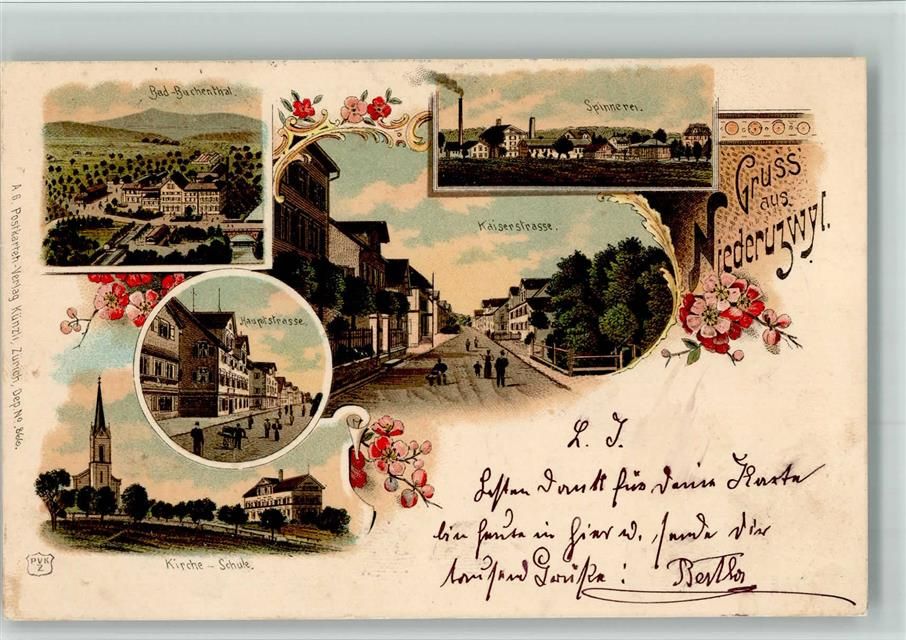 Bad-Buchenthal.
Spinnerei.
Gruss
aus
Niederuzwyl.
Kaiserstrasse.
Hauptstrasse.
Kirche - Schule.
A. G. Postkarten-Verlag Künzli, Zürich, Dep. No. 866.
PVK
Z
L. J.
Besten Dank für deine Karte
bin heute in hier u. sende dir
tausend Grüße: Bertha